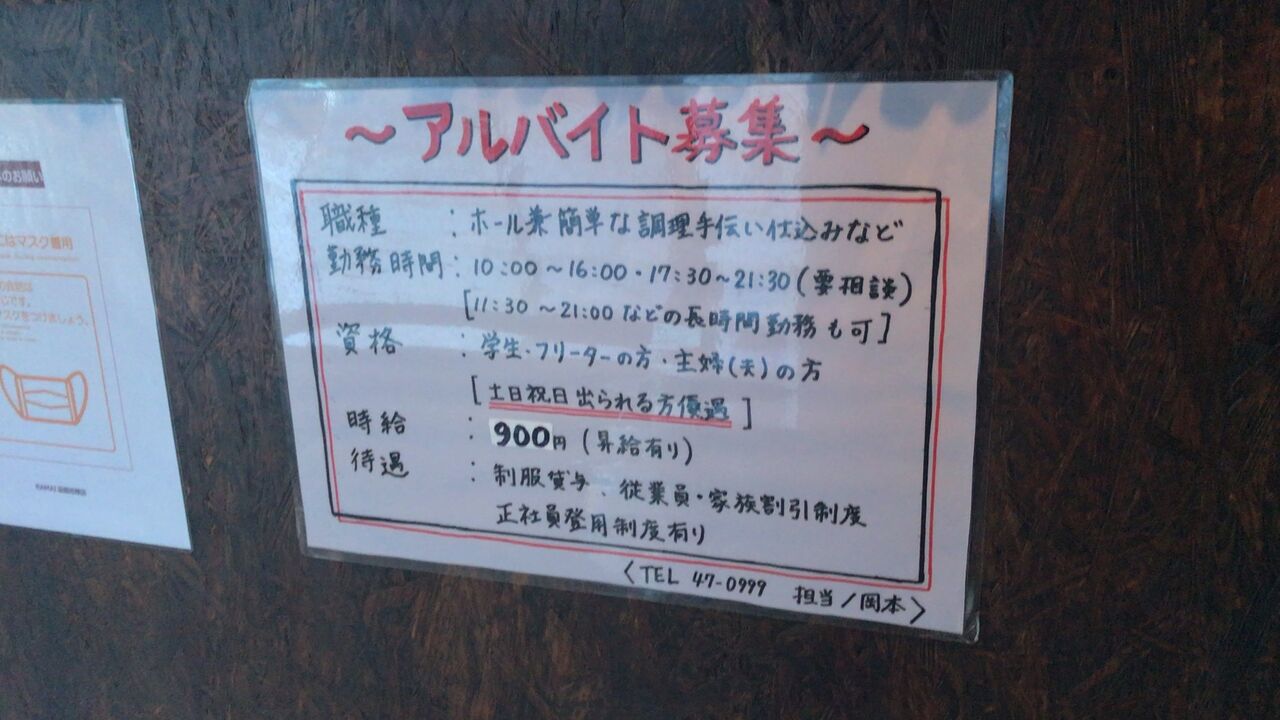 ～アルバイト募集～
職種 : ホール兼簡単な調理手伝い仕込みなど
勤務時間 : 10:00～16:00・17:30～21:30(要相談)
[11:30～21:00などの長時間勤務も可]
資格 : 学生・フリーターの方・主婦(夫)の方
[土日祝日出られる方優遇]
時給 : 900円(昇給有り)
待遇 : 制服貸与、従業員・家族割引制度
正社員登用制度有り
〈TEL 47-0999 担当/岡本〉
のお願い
はマスク着用
スクをつけましょう。